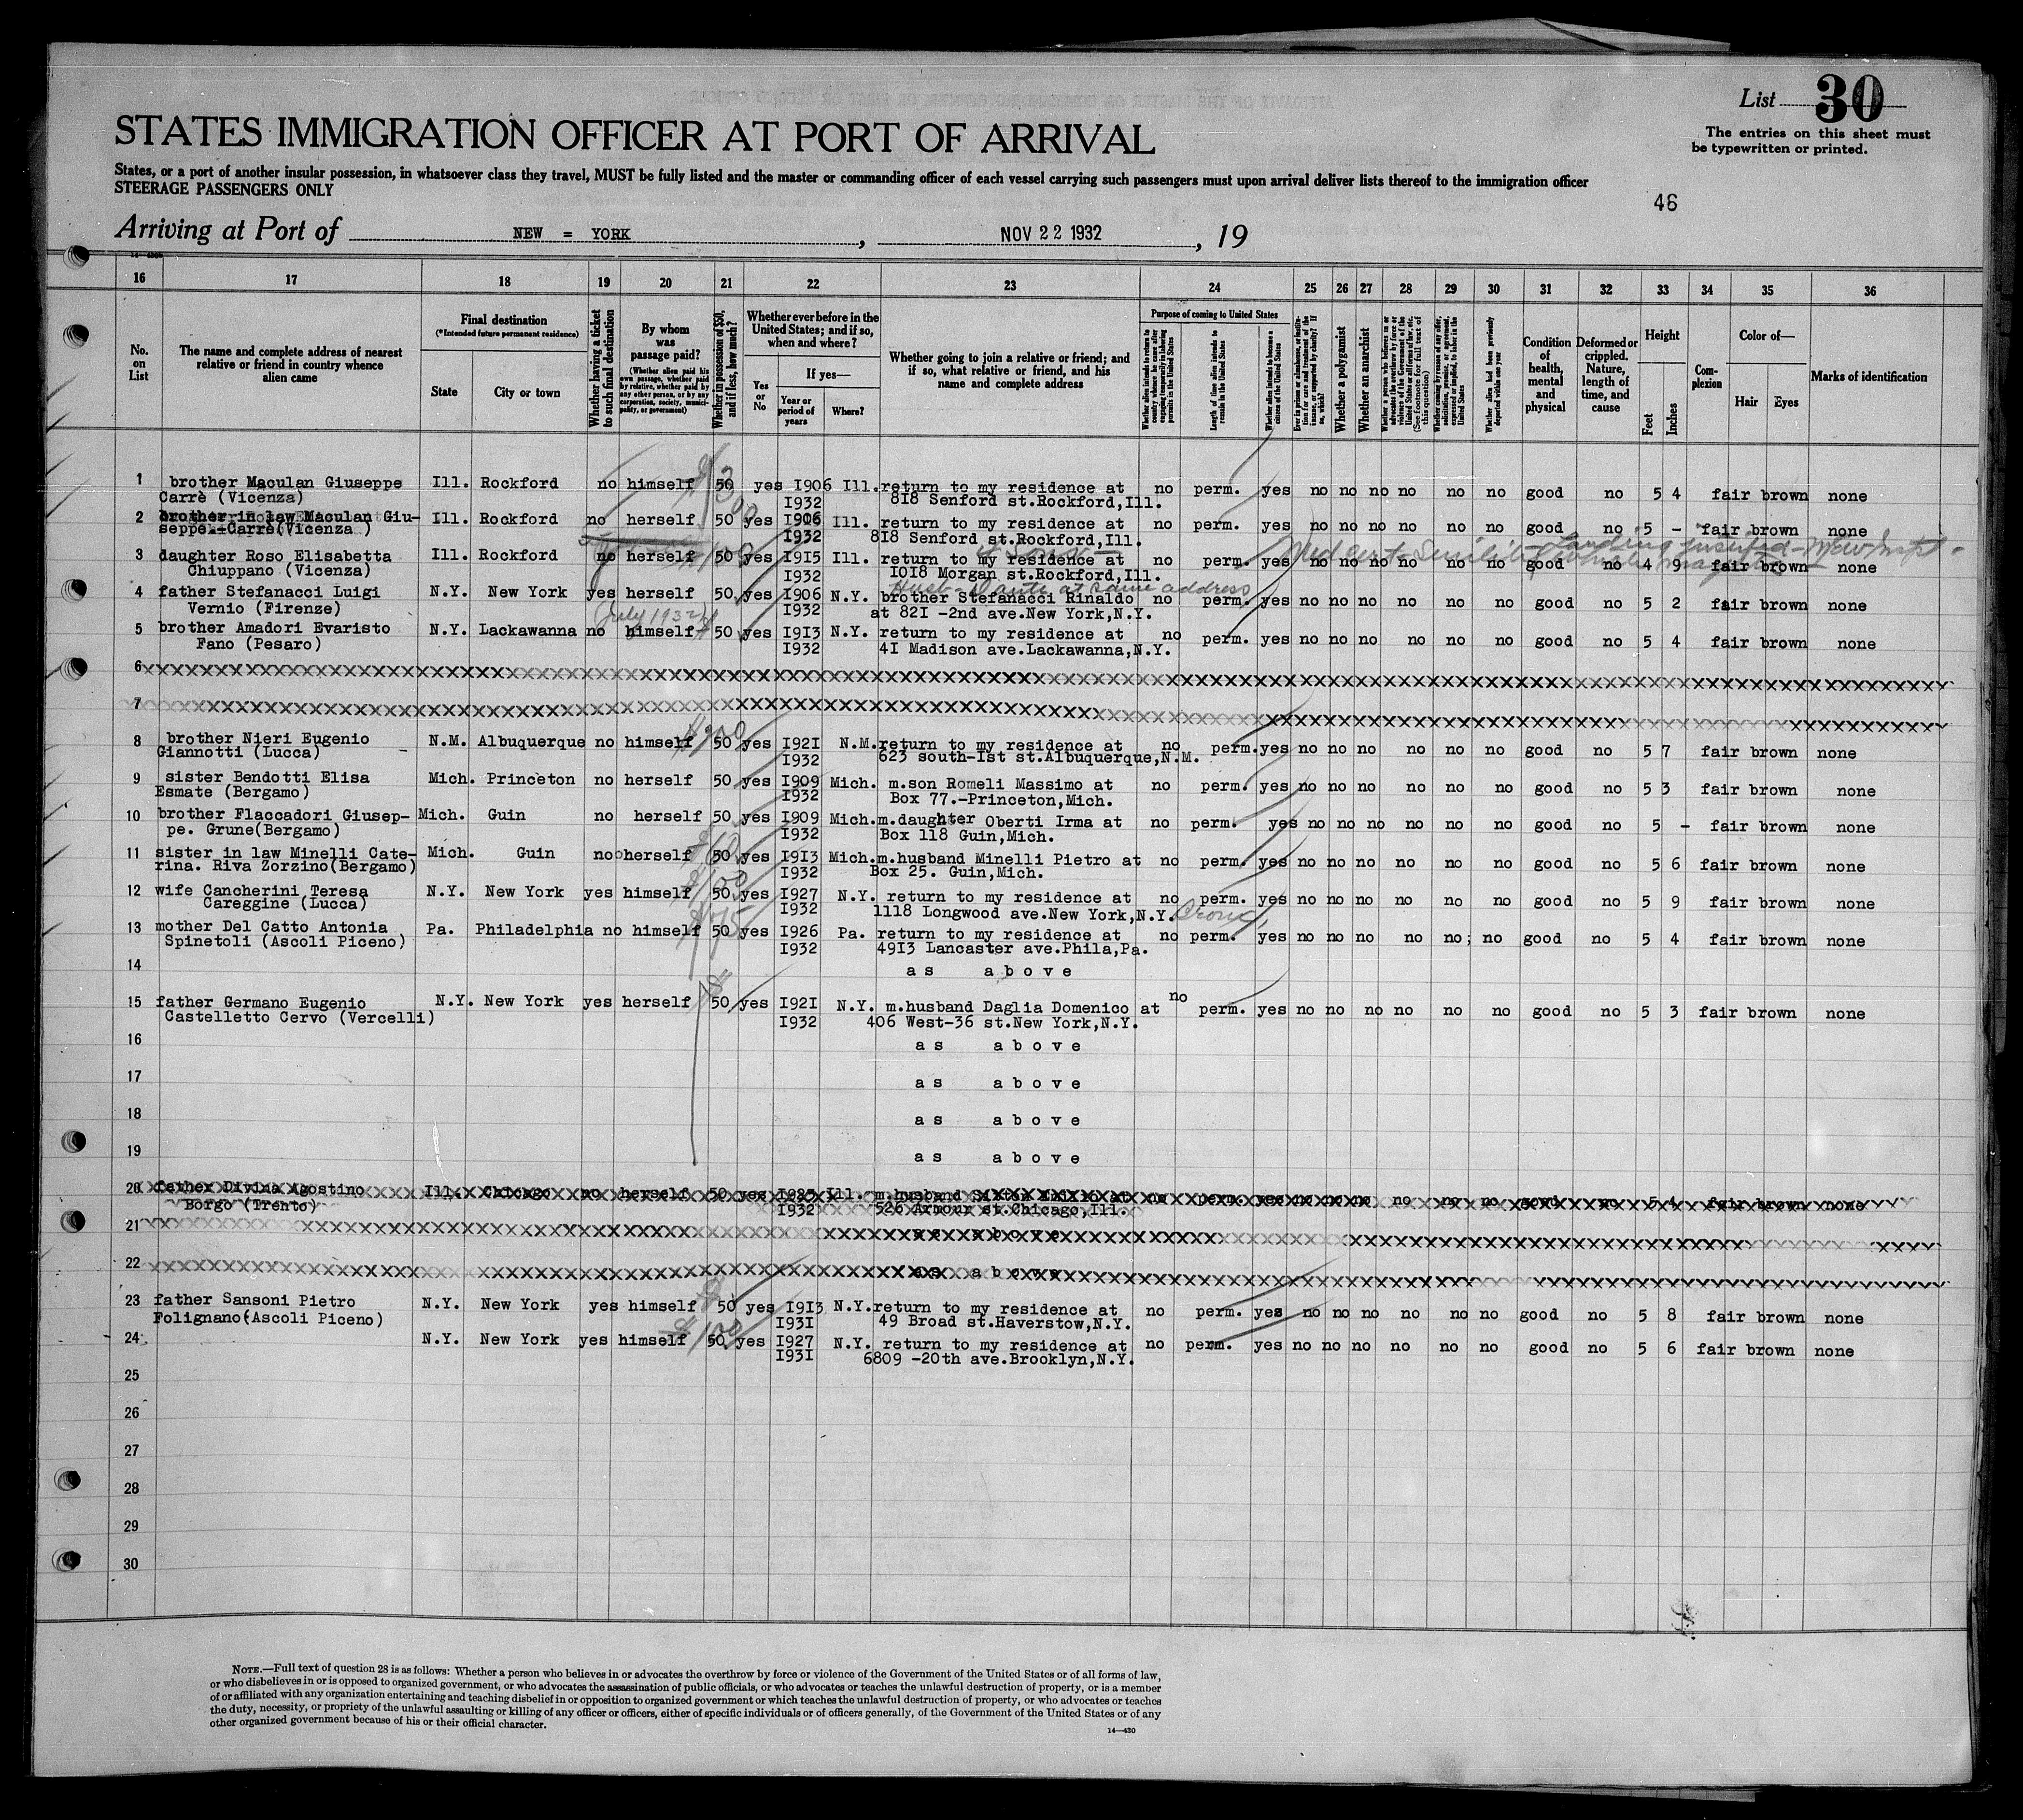 List 30
The entries on this sheet must
be typewritten or printed.
STATES IMMIGRATION OFFICER AT PORT OF ARRIVAL
States, or a port of another insular possession, in whatsoever class they travel, MUST be fully listed and the master or commanding officer of each vessel carrying such passengers must upon arrival deliver lists thereof to the immigration officer
STEERAGE PASSENGERS ONLY
46
Arriving at Port of NEW = YORK, NOV 22 1932, 19
16 17 18 19 20 21 22 23 24 25 26 27 28 29 30 31 32 33 34 35 36
No. on List
The name and complete address of nearest relative or friend in country whence alien came
Final destination
(*Intended future permanent residence)
State
City or town
Whether having a ticket to such final destination
By whom was passage paid?
(Whether alien paid his own passage, whether paid by relative, whether paid by any other person, or by any corporation, society, municipality, or government)
Whether in possession of $50, and if less, how much?
Whether ever before in the United States; and if so, when and where?
Yes or No
If yes—
Year or period of years
Where?
Whether going to join a relative or friend; and if so, what relative or friend, and his name and complete address
Purpose of coming to United States
Length of time alien intends to remain in the United States
Whether alien intends to become a citizen of the United States
Whether a polygamist
Whether an anarchist
Condition of health, mental and physical
Deformed or crippled. Nature, length of time, and cause
Height
Feet
Inches
Complexion
Color of—
Hair
Eyes
Marks of identification
1 brother Maculan Giuseppe Ill. Rockford no himself 50 yes I906 Ill. return to my residence at no perm. yes no no no no no no good no 5 4 fair brown none
Carrè (Vicenza) I932 8I8 Senford st.Rockford,Ill.
2 brother in law Maculan Giu- Ill. Rockford no herself 50 yes I906 Ill. return to my residence at no perm. yes no no no no no no good no 5 - fair brown none
seppe.-Carrè(Vicenza ) I932 8I8 Senford st.Rockford,Ill.
3 daughter Roso Elisabetta Ill. Rockford no herself 50 yes I9I5 Ill. return to my residence at no perm. yes no no no no no no good no 4 9 fair brown none
Chiuppano (Vicenza) I932 I0I8 Morgan st.Rockford,Ill.
at same address
4 father Stefanacci Luigi N.Y. New York yes herself 50 yes I906 N.Y. brother Stefanacci Rinaldo no perm. yes no no no no no no good no 5 2 fair brown none
Vernio (Firenze) (July 1932) I932 at 82I -2nd ave.New York,N.Y.
5 brother Amadori Evaristo N.Y. Lackawanna no himself 50 yes I9I3 N.Y. return to my residence at no perm. yes no no no no no no good no 5 4 fair brown none
Fano (Pesaro) I932 4I Madison ave.Lackawanna,N.Y.
6
7
8 brother Nieri Eugenio N.M. Albuquerque no himself 50 yes I92I N.M. return to my residence at no perm. yes no no no no no no good no 5 7 fair brown none
Giannotti (Lucca) I932 623 south-Ist st.Albuquerque,N.M.
9 sister Bendotti Elisa Mich. Princeton no herself 50 yes I909 Mich. m.son Romeli Massimo at no perm. yes no no no no no no good no 5 3 fair brown none
Esmate (Bergamo) I932 Box 77.-Princeton,Mich.
10 brother Flaccadori Giusep- Mich. Guin no herself 50 yes I909 Mich. m.daughter Oberti Irma at no perm. yes no no no no no no good no 5 - fair brown none
pe. Grune(Bergamo) I932 Box 118 Guin,Mich.
11 sister in law Minelli Cate- Mich. Guin no herself 50 yes I9I3 Mich. m.husband Minelli Pietro at no perm. yes no no no no no no good no 5 6 fair brown none
rina. Riva Zorzino(Bergamo) I932 Box 25. Guin,Mich.
12 wife Cancherini Teresa N.Y. New York yes himself 50 yes I927 N.Y. return to my residence at no perm. yes no no no no no no good no 5 9 fair brown none
Careggine (Lucca) I932 1118 Longwood ave.New York,N.Y. Bronx
13 mother Del Catto Antonia Pa. Philadelphia no himself 50 yes I926 Pa. return to my residence at no perm. yes no no no no no; no good no 5 4 fair brown none
Spinetoli (Ascoli Piceno) I932 49I3 Lancaster ave.Phila,Pa.
14 as above
15 father Germano Eugenio N.Y. New York yes herself 50 yes I92I N.Y. m.husband Daglia Domenico at no perm. yes no no no no no no good no 5 3 fair brown none
Castelletto Cervo (Vercelli) I932 406 West-36 st.New York,N.Y.
16 as above
17 as above
18 as above
19 as above
20 father Divina Agostino Ill. Chicago no herself 50 yes Ill. m.husband at no perm. yes no no no no no no good no 5 4 fair brown none
Borgo (Trento) I932 526 Armour st.Chicago,Ill.
21 as above
22 as above
23 father Sansoni Pietro N.Y. New York yes himself 50 yes I9I3 N.Y. return to my residence at no perm. yes no no no no no no good no 5 8 fair brown none
Folignano(Ascoli Piceno) I93I 49 Broad st.Haverstow,N.Y.
24 N.Y. New York yes himself 50 yes I927 N.Y. return to my residence at no perm. yes no no no no no no good no 5 6 fair brown none
I93I 6809 -20th ave.Brooklyn,N.Y.
25
26
27
28
29
30
NOTE.—Full text of question 28 is as follows: Whether a person who believes in or advocates the overthrow by force or violence of the Government of the United States or of all forms of law,
or who disbelieves in or is opposed to organized government, or who advocates the assassination of public officials, or who advocates or teaches the unlawful destruction of property, or is a member
of or affiliated with any organization entertaining and teaching disbelief in or opposition to organized government or which teaches the unlawful destruction of property, or who advocates or teaches
the duty, necessity, or propriety of the unlawful assaulting or killing of any officer or officers, either of specific individuals or of officers generally, of the Government of the United States or of any
other organized government because of his or their official character.
14—430